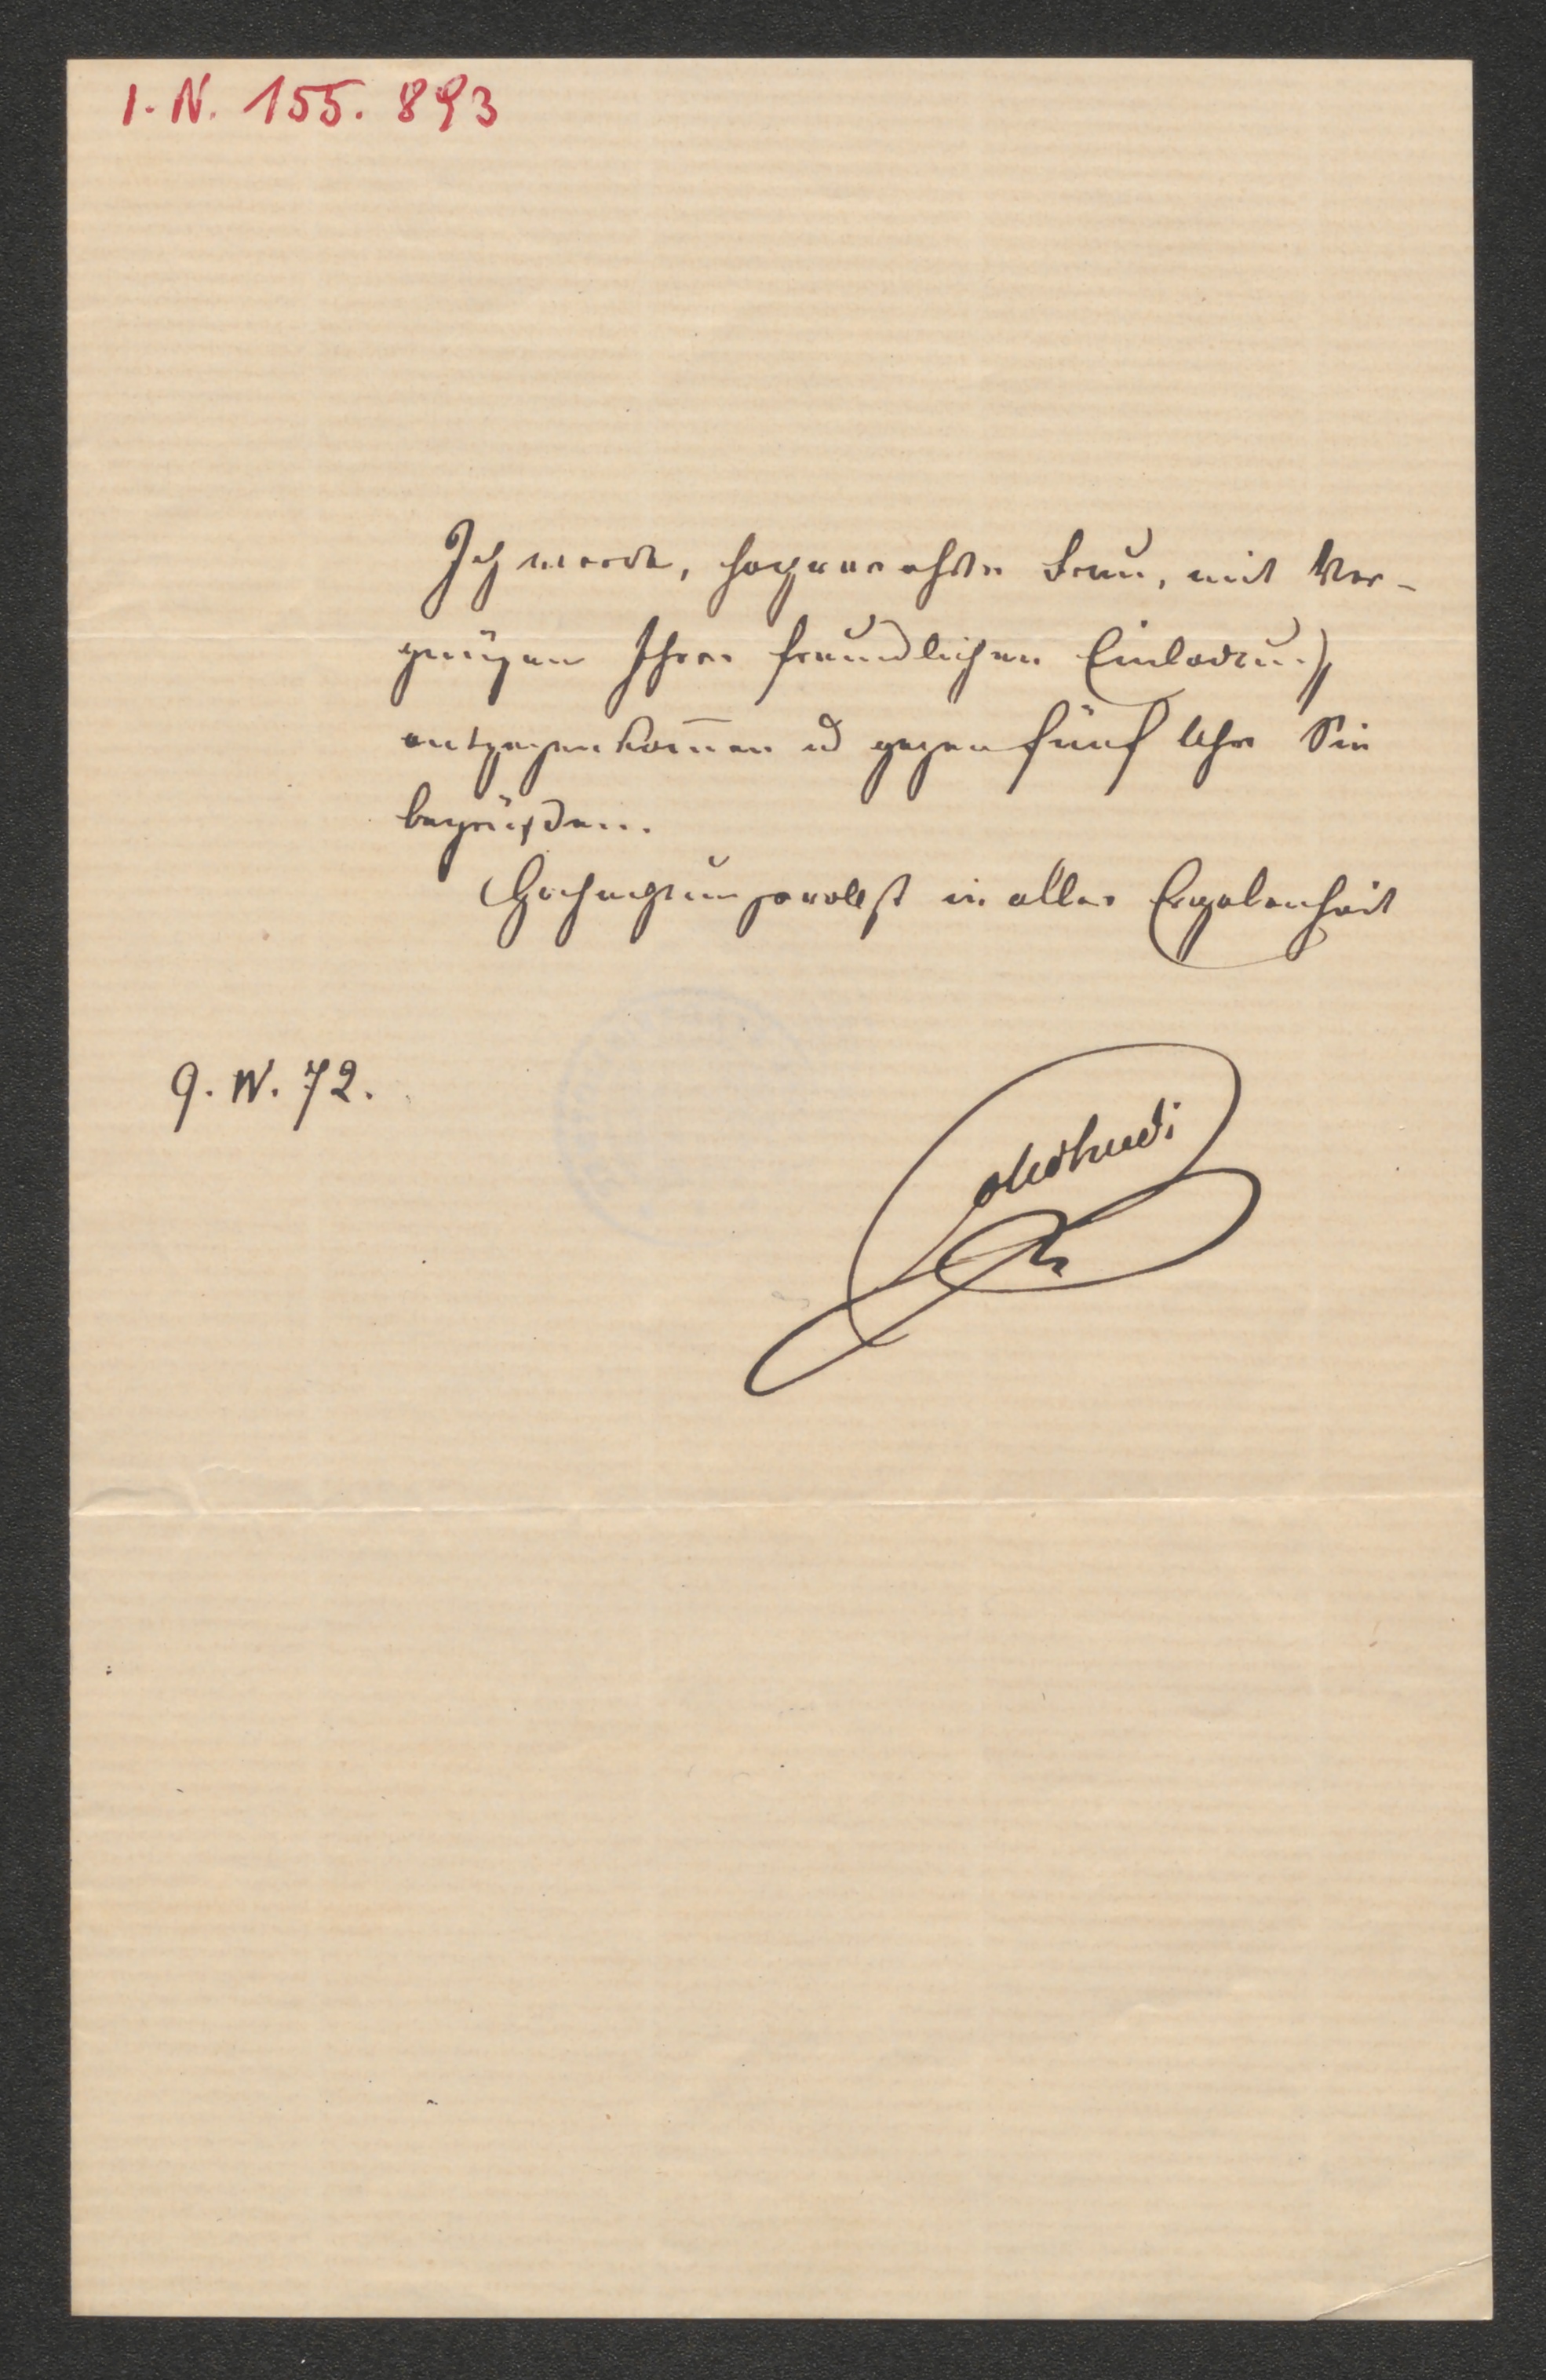 I. N. 155.893
Ich werde, hochverehrte Frau, mit Ver-
gnügen Ihrer freundlichen Einladung
entgegenkom̅en u gegen fünf Uhr Sie
begrüßen.
Hochachtungsvollst in aller Ergebenheit
9. IV. 72.